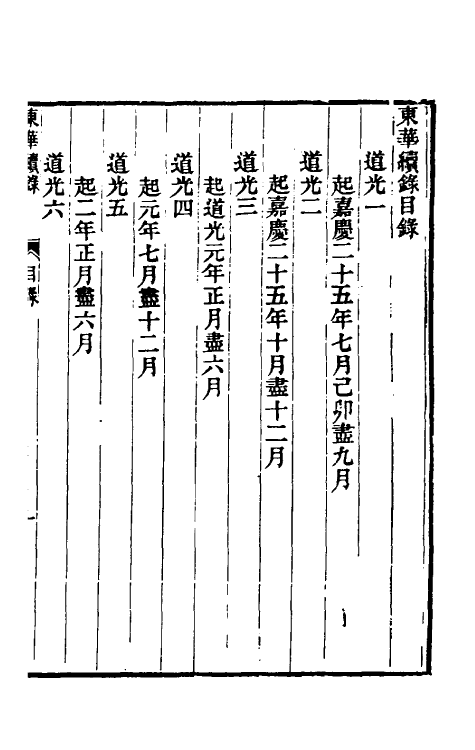 東華續錄目錄
道光一
起嘉慶二十五年七月己卯盡九月
道光二
起嘉慶二十五年十月盡十二月
道光三
起道光元年正月盡六月
道光四
起元年七月盡十二月
道光五
起二年正月盡六月
道光六
東華續錄 目錄 一